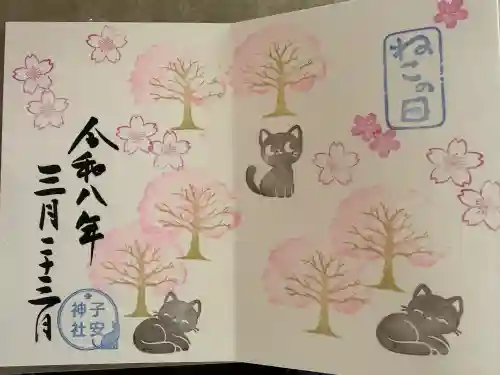 ねこの日
令和八年
三月二十三日
子安
神社